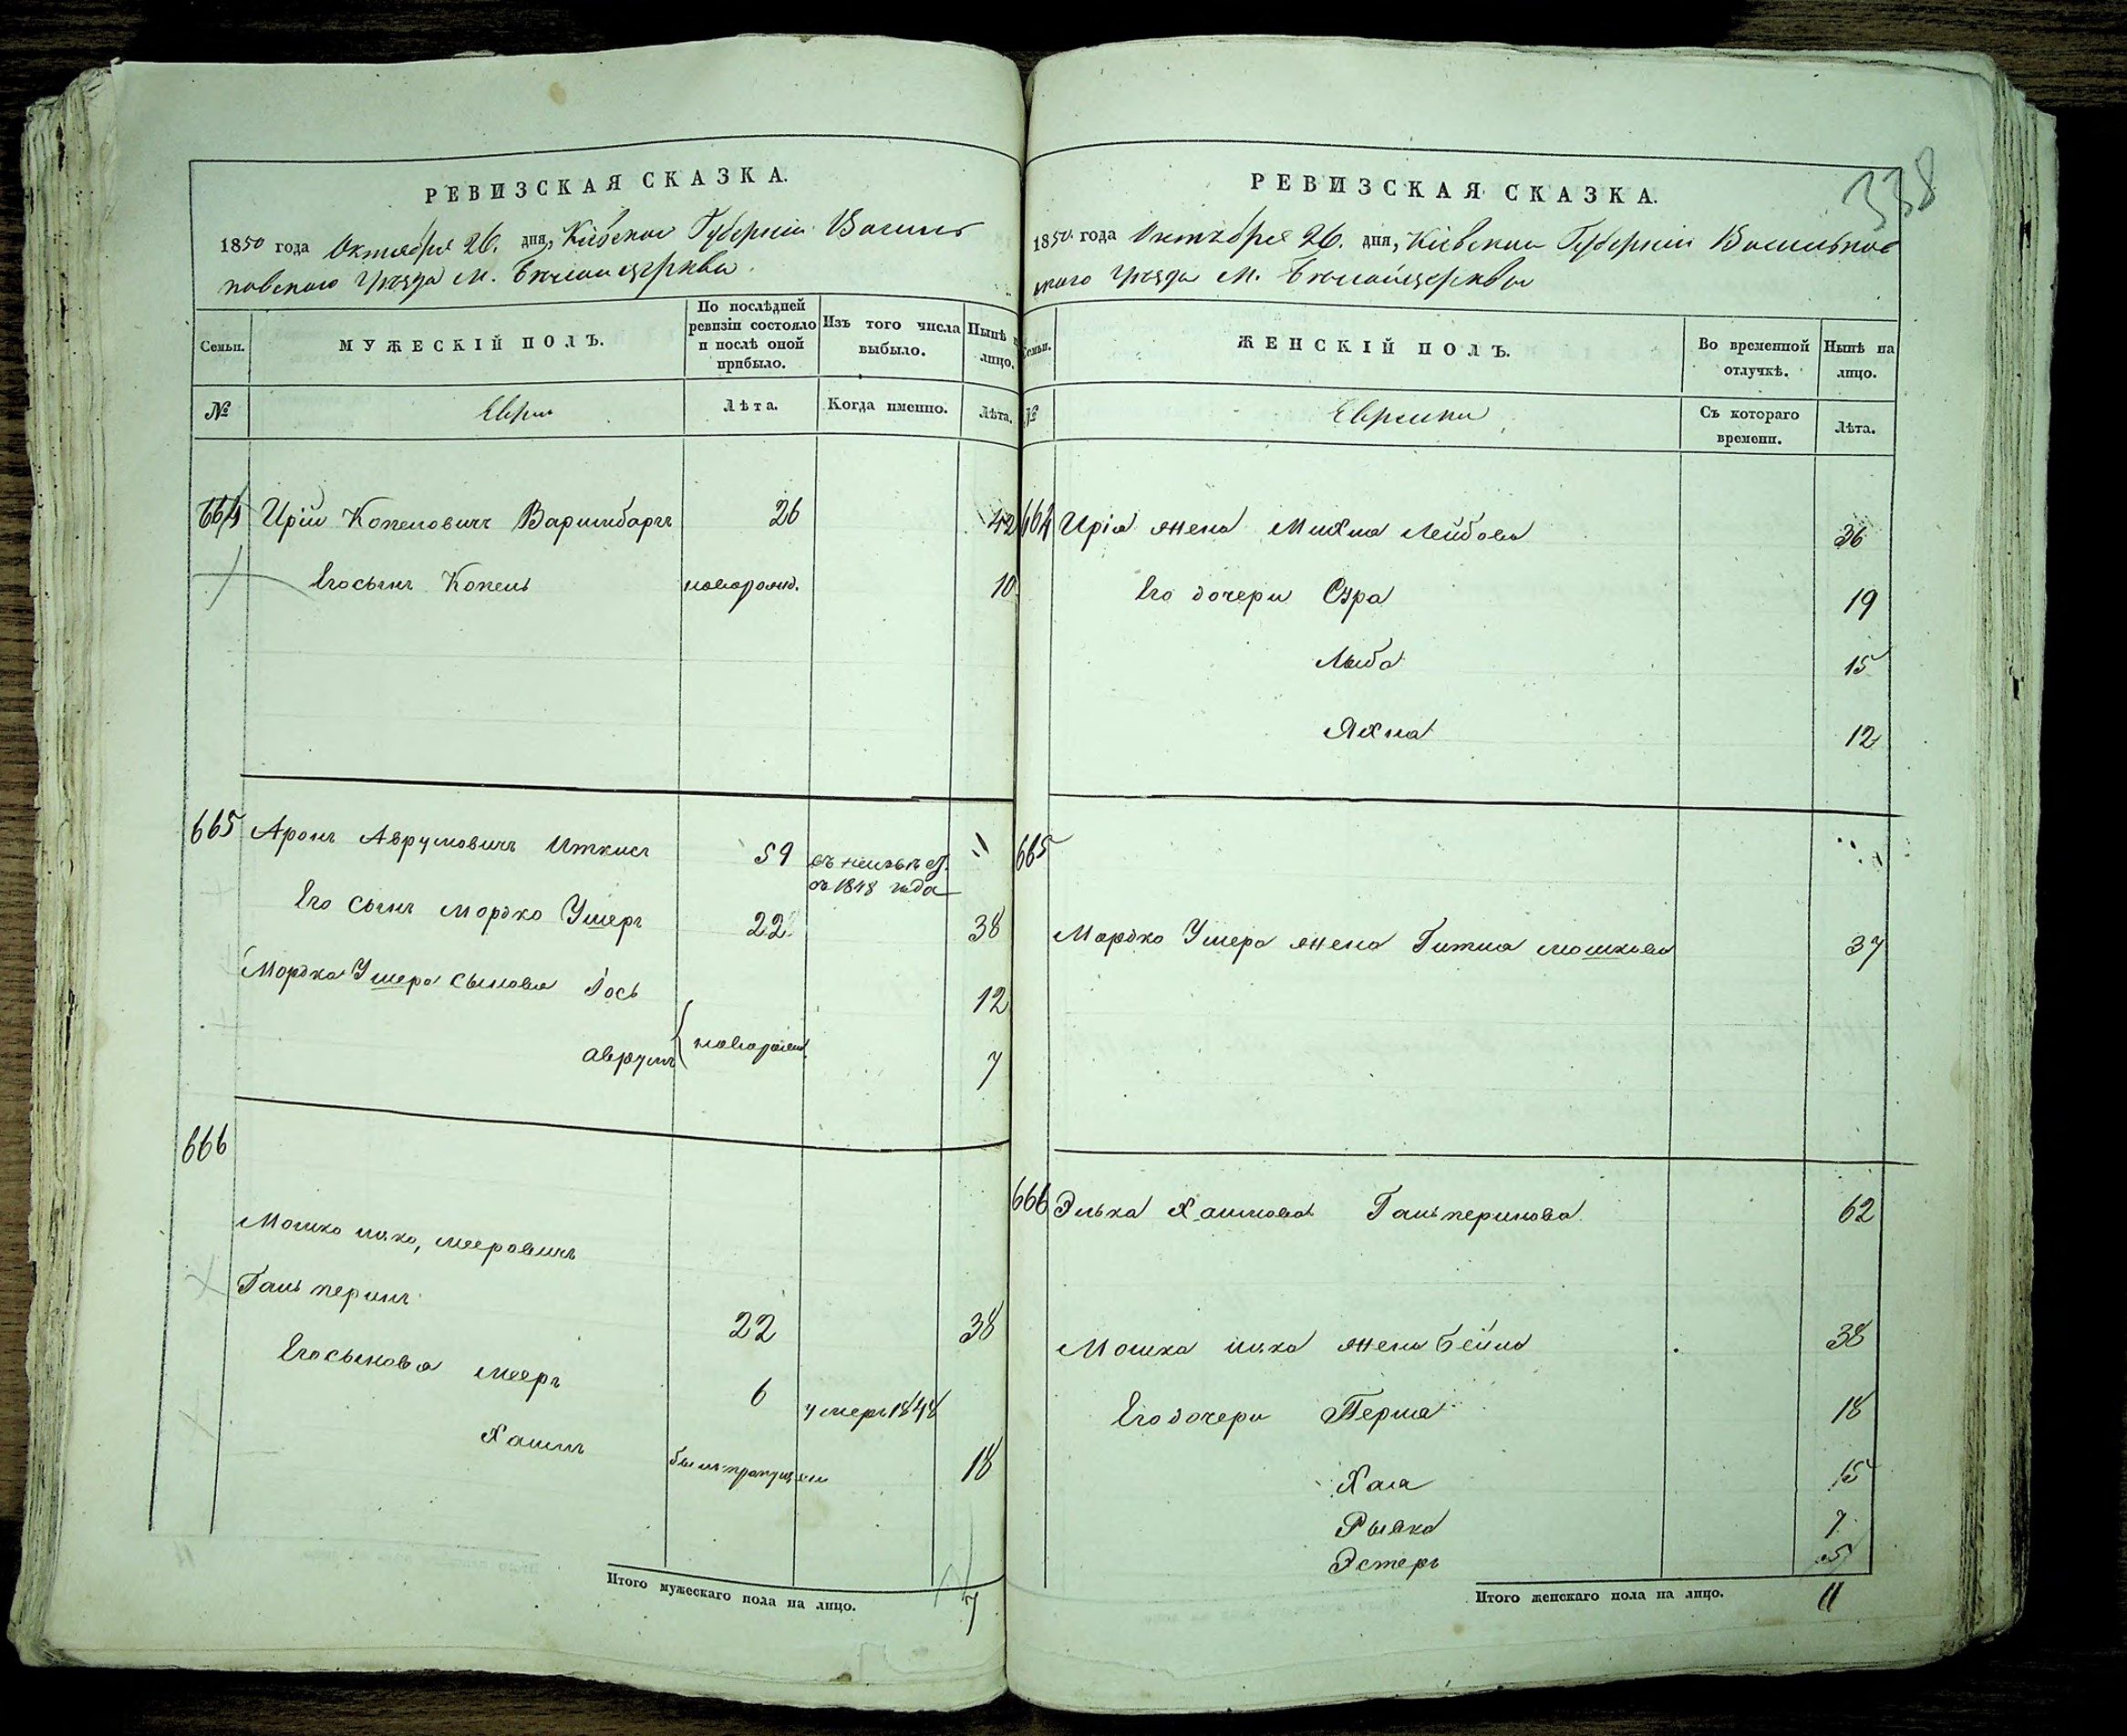 РЕВИЗСКАЯ СКАЗКА.
1850 года Октября 26. дня, Кіевской Губерніи Василь
ковскаго уѣзда м. Бѣлойцеркви.
Семьи.
МУЖЕСКІЙ ПОЛЪ.
По послѣдней ревизіи состояло и послѣ оной прибыло.
Изъ того числа выбыло.
Нынѣ на лицо.
№
Евреи
Лѣта.
Когда именно.
Лѣта.
664 Ирій Копеловичъ 26 42
Его сынъ Копель новорожд. 10
665 Аронъ Аврумовичъ Иткисъ 59 въ неизвѣст.
съ 1848 года
Его сынъ Мордко Ушеръ 22 38
Мордка Ушера сыновья Іось 12
Аврумъ новорожд. 7
666
Мошко Ицко, Мееровичъ
Гальперинъ 22 38
Его сыновья Мееръ 6 умеръ 1848
Хаимъ былъ пропущен 18
Итого мужескаго пола на лицо. 7
338
РЕВИЗСКАЯ СКАЗКА.
1850 года Октября 26. дня, Кіевской Губерніи Васильков
скаго уѣзда м. Бѣлойцеркви
Семьи.
ЖЕНСКІЙ ПОЛЪ.
Во временной отлучкѣ.
Нынѣ на лицо.
№
Еврейки
Съ котораго времени.
Лѣта.
664 Ирія жена Лейбова 36
Его дочери Сура 19
15
Яхна 12
665
Мордко Ушера жена Гитля Мошкова 37
666 Элька Хаимова Гальперинова 62
Мошка Ицка жена Бейла 38
Его дочери Перля 18
Хая 15
Рывка 7
Эстеръ 5
Итого женскаго пола на лицо. 11